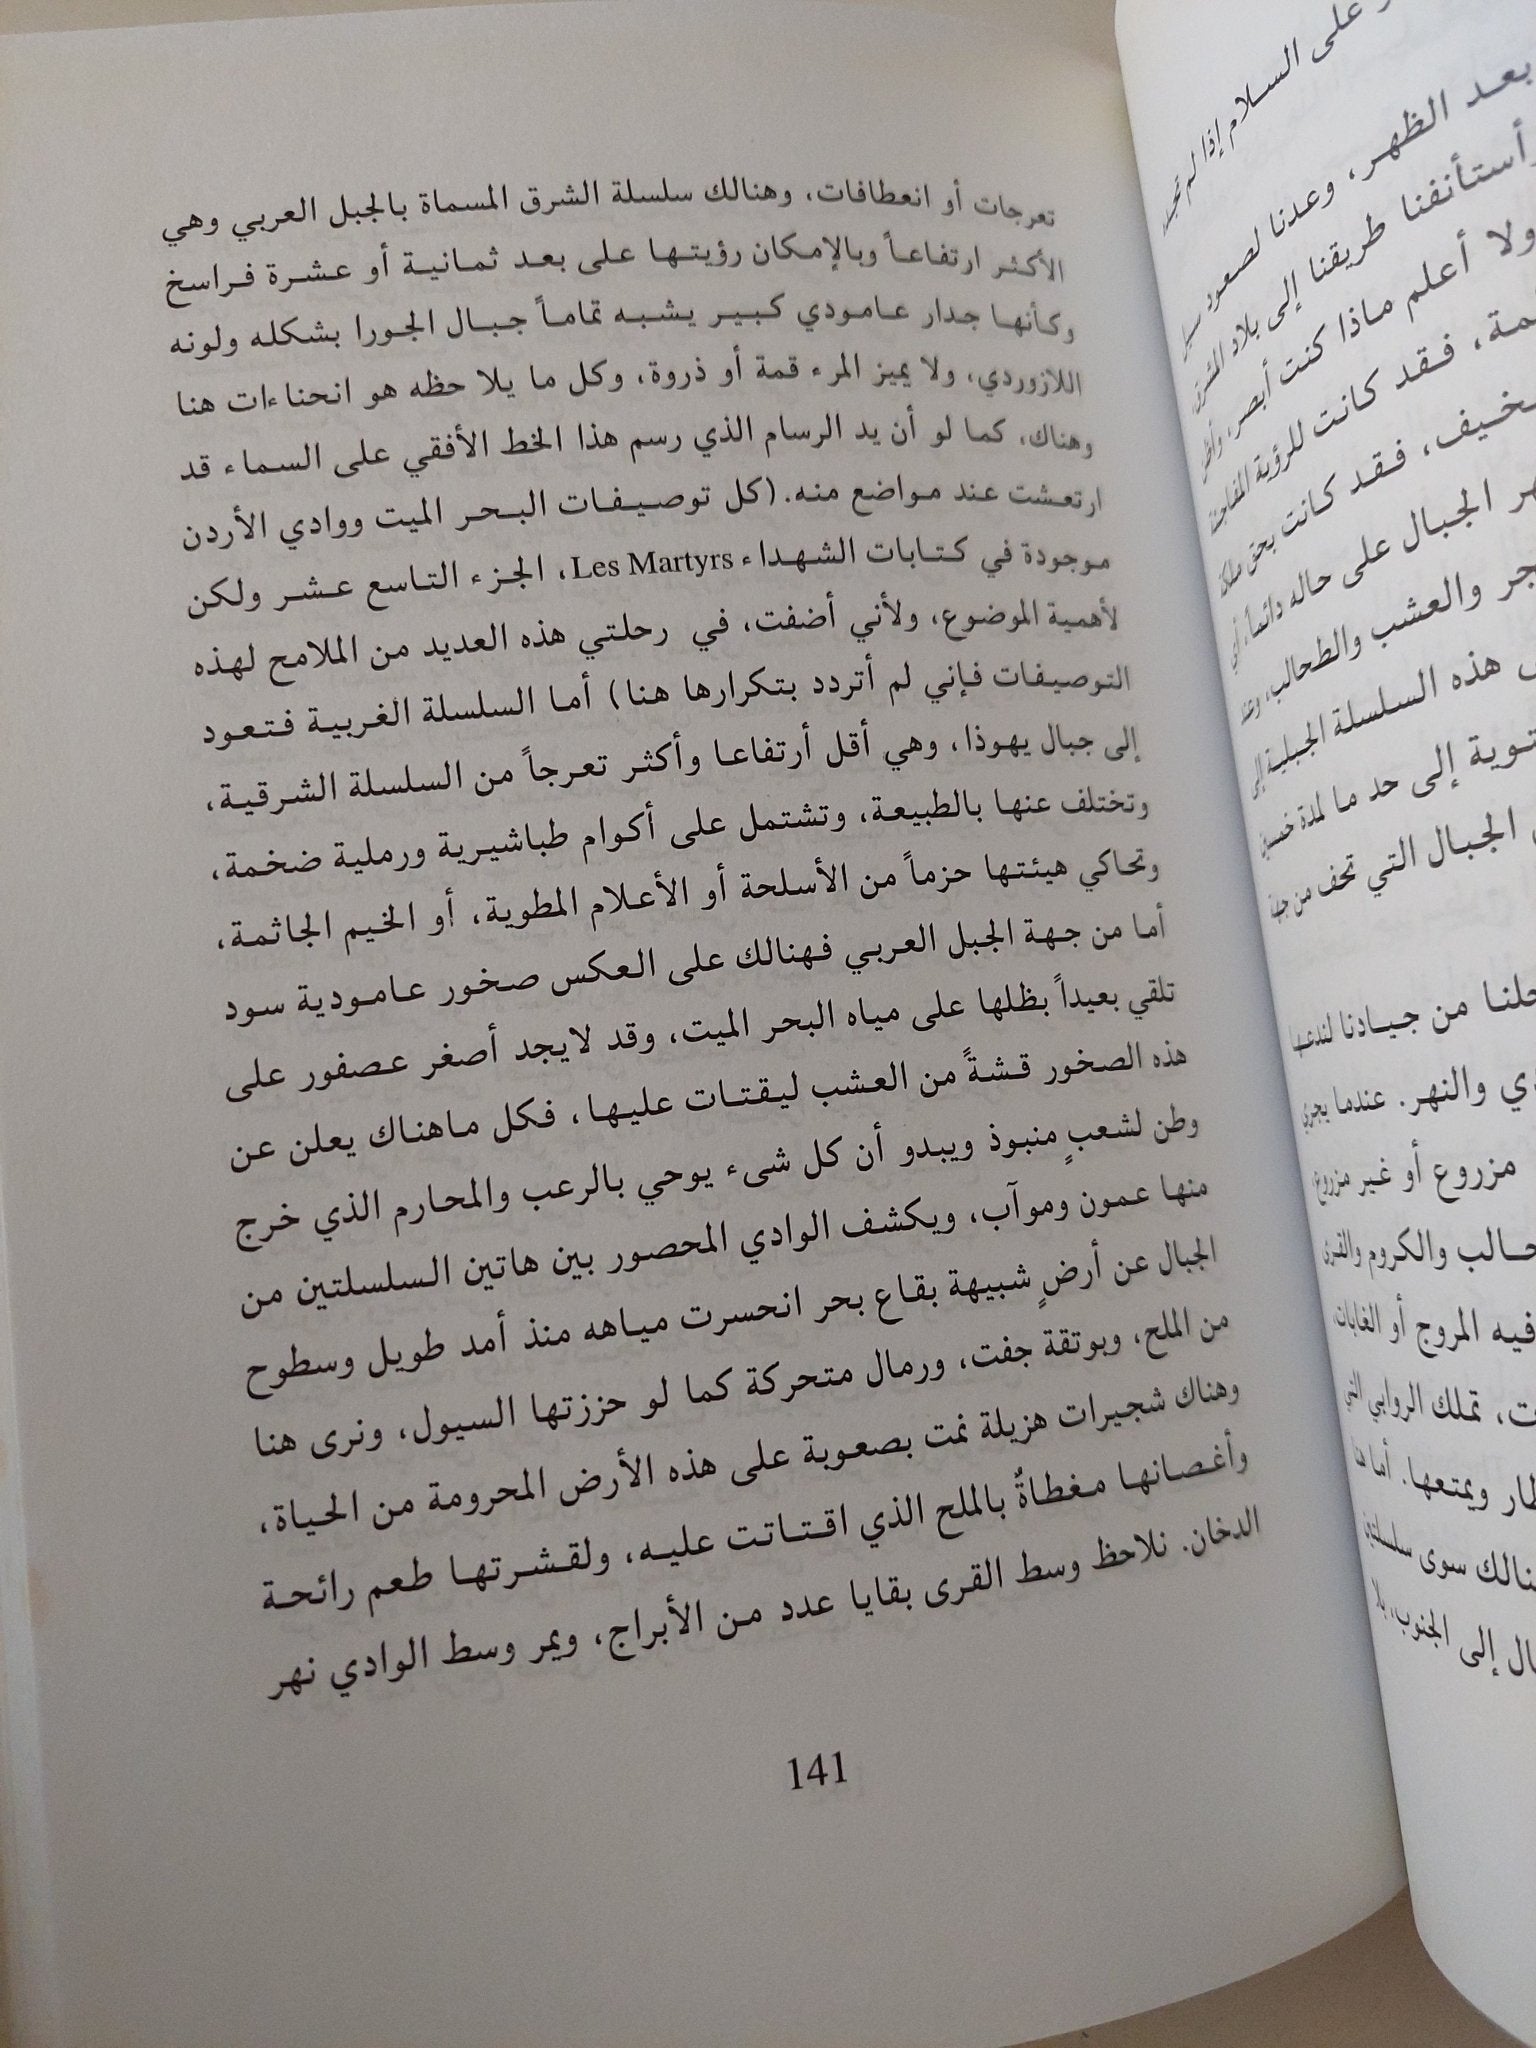 تعرجات أو انعطافات، وهنالك سلسلة الشرق المسماة بالجبل العربي وهي
الأكثر ارتفاعاً وبالإمكان رؤيتها على بعد ثمانية أو عشرة فراسخ
وكأنها جدار عامودي كبير يشبه تماماً جبال الجورا بشكله ولونه
اللازوردي، ولا يميز المرء قمة أو ذروة، وكل ما يلا حظه هو انحناءات هنا
وهناك، كما لو أن يد الرسام الذي رسم هذا الخط الأفقي على السماء قد
ارتعشت عند مواضع منه. (كل توصيفات البحر الميت ووادي الأردن
موجودة في كتابات الشهداء Les Martyrs، الجزء التاسع عشر ولكن
لأهمية الموضوع، ولأني أضفت، في رحلتي هذه العديد من الملامح لهذه
التوصيفات فإني لم أتردد بتكرارها هنا) أما السلسلة الغربية فتعود
إلى جبال يهوذا، وهي أقل أرتفاعا وأكثر تعرجاً من السلسلة الشرقية،
وتختلف عنها بالطبيعة، وتشتمل على أكوام طباشيرية ورملية ضخمة،
وتحاكي هيئتها حزماً من الأسلحة أو الأعلام المطوية، أو الخيم الجاثمة،
أما من جهة الجبل العربي فهنالك على العكس صخور عامودية سود
تلقي بعيداً بظلها على مياه البحر الميت، وقد لايجد أصغر عصفور على
هذه الصخور قشةً من العشب ليقتات عليها، فكل ماهناك يعلن عن
وطن لشعبٍ منبوذ ويبدو أن كل شىء يوحي بالرعب والمحارم الذي خرج
منها عمون وموآب، ويكشف الوادي المحصور بين هاتين السلسلتين من
الجبال عن أرضٍ شبيهة بقاع بحر انحسرت مياهه منذ أمد طويل وسطوح
من الملح، وبوتقة جفت، ورمال متحركة كما لو حززتها السيول، ونرى هنا
وهناك شجيرات هزيلة نمت بصعوبة على هذه الأرض المحرومة من الحياة،
وأغصانها مغطاةٌ بالملح الذي اقتاتت عليه، ولقشرتها طعم رائحة
الدخان. نلاحظ وسط القرى بقايا عدد من الأبراج، ويمر وسط الوادي نهر
141
على السلام إذا لم
بعد الظهر، وعدنا لصعود
أستأنفنا طريقنا إلى بلاد المشرق
ولا أعلم ماذا كنت أبصر، وأظن
فقد كانت للرؤية المفاجئة
فقد كانت بحق مملكة
الجبال على حاله دائماً، أي
والعشب والطحالب، وعند
هذه السلسلة الجبلية إلى
إلى حد ما لمدة
الجبال التي تحف من جهة
من جيادنا لندعها
والنهر. عندما يجري
مزروع أو غير مزروع،
والكروم والقرى
فيه المروج أو الغابات،
تملك الروابي التي
ويمتعها. أما هنا
سوى سلسلتين
إلى الجنوب، بلا